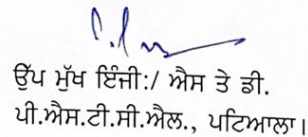 ਉੱਪ ਮੁੱਖ ਇੰਜੀ:/ ਐਸ ਤੇ ਡੀ.
ਪੀ.ਐਸ.ਟੀ.ਸੀ.ਐਲ., ਪਟਿਆਲਾ।